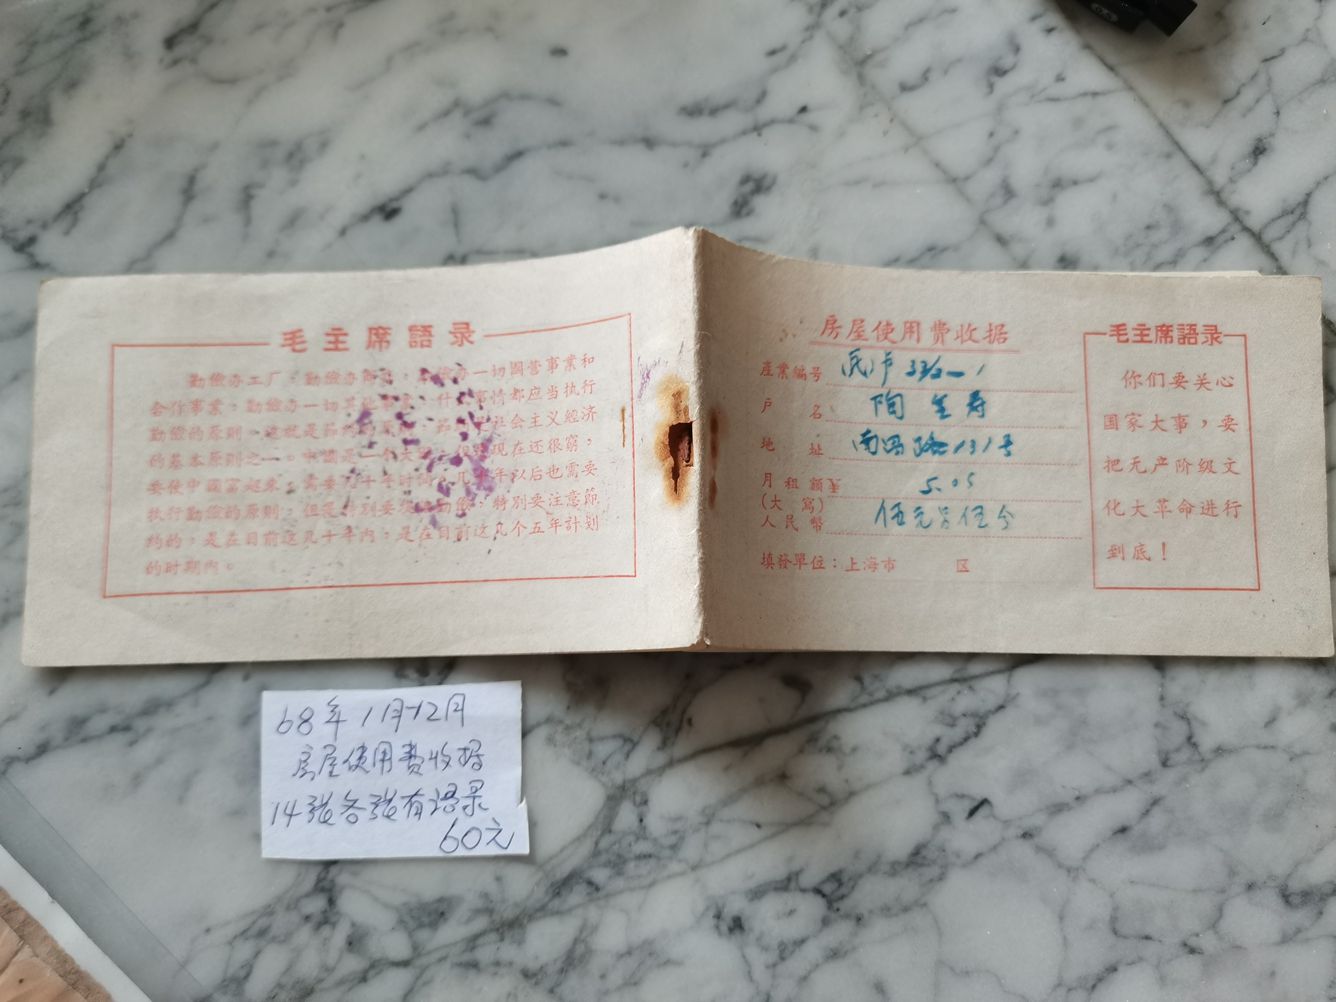 毛主席語录
勤儉办工厂，勤儉办商店，勤儉办一切國营事業和
合作事業，勤儉办一切其他事業，什么事情都应当执行
勤儉的原则。这就是節約的原则，節約是社会主义經济
的基本原则之一。中國是一个大國，但是现在还很窮，
要使中國富起来，需要几十年时间。几十年以后也需要
执行勤儉的原则，但是特别要提倡勤儉，特别要注意節
約的，是在目前这几十年内，是在目前这几个五年計划
的时期内。
房屋使用費收据
產業編号
戶名 陶金寿
地址 南昌路131号
月租額¥ 5.05
(大寫)
人民幣 伍元另伍分
填發單位：上海市 区
毛主席語录
你们要关心
国家大事，要
把无产阶级文
化大革命进行
到底！
68年1月-12月
房屋使用费收据
14张各张有语录
60元